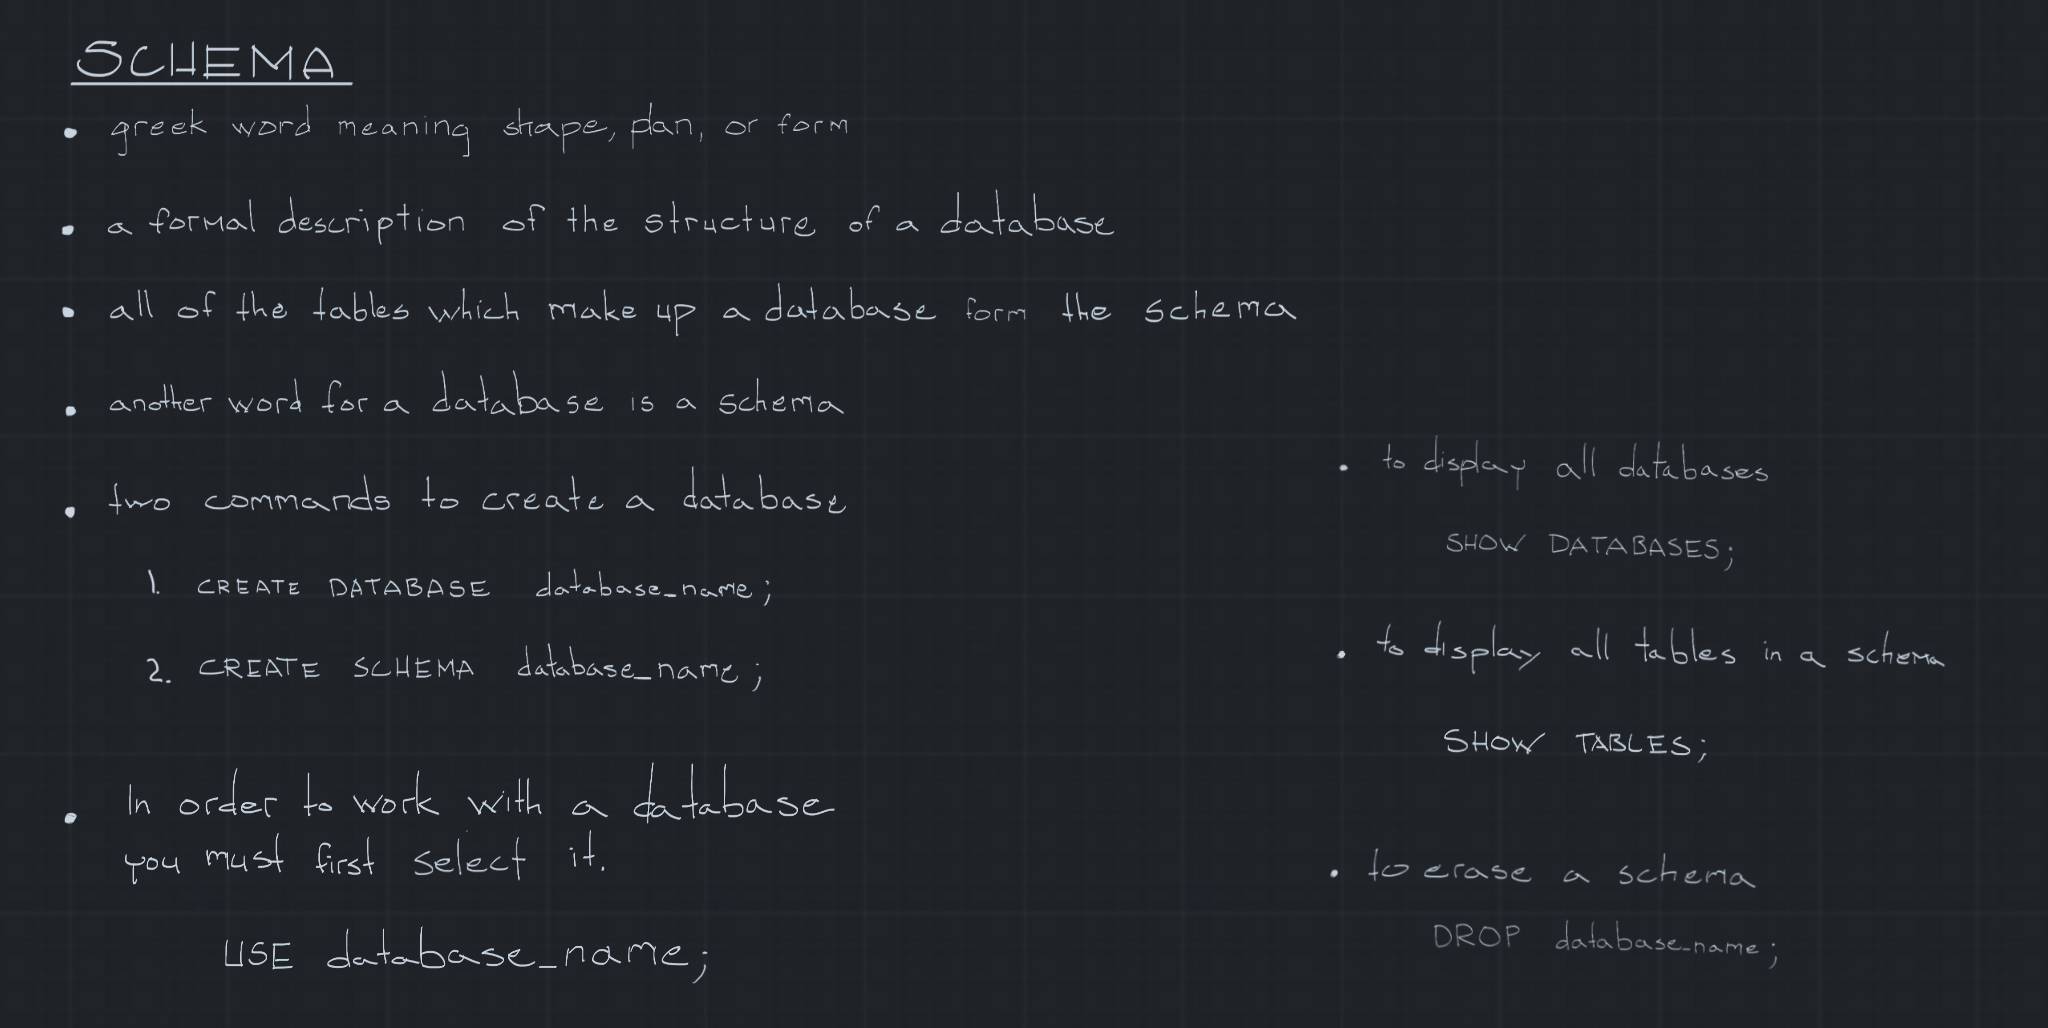 SCHEMA
• greek word meaning shape, plan, or form
• a formal description of the structure of a database
• all of the tables which make up a database form the schema
• another word for a database is a schema
• two commands to create a database
1. CREATE DATABASE database_name;
2. CREATE SCHEMA database_name;
• In order to work with a database
you must first select it.
USE database_name;
• to display all databases
SHOW DATABASES;
• to display all tables in a schema
SHOW TABLES;
• to erase a schema
DROP database_name;